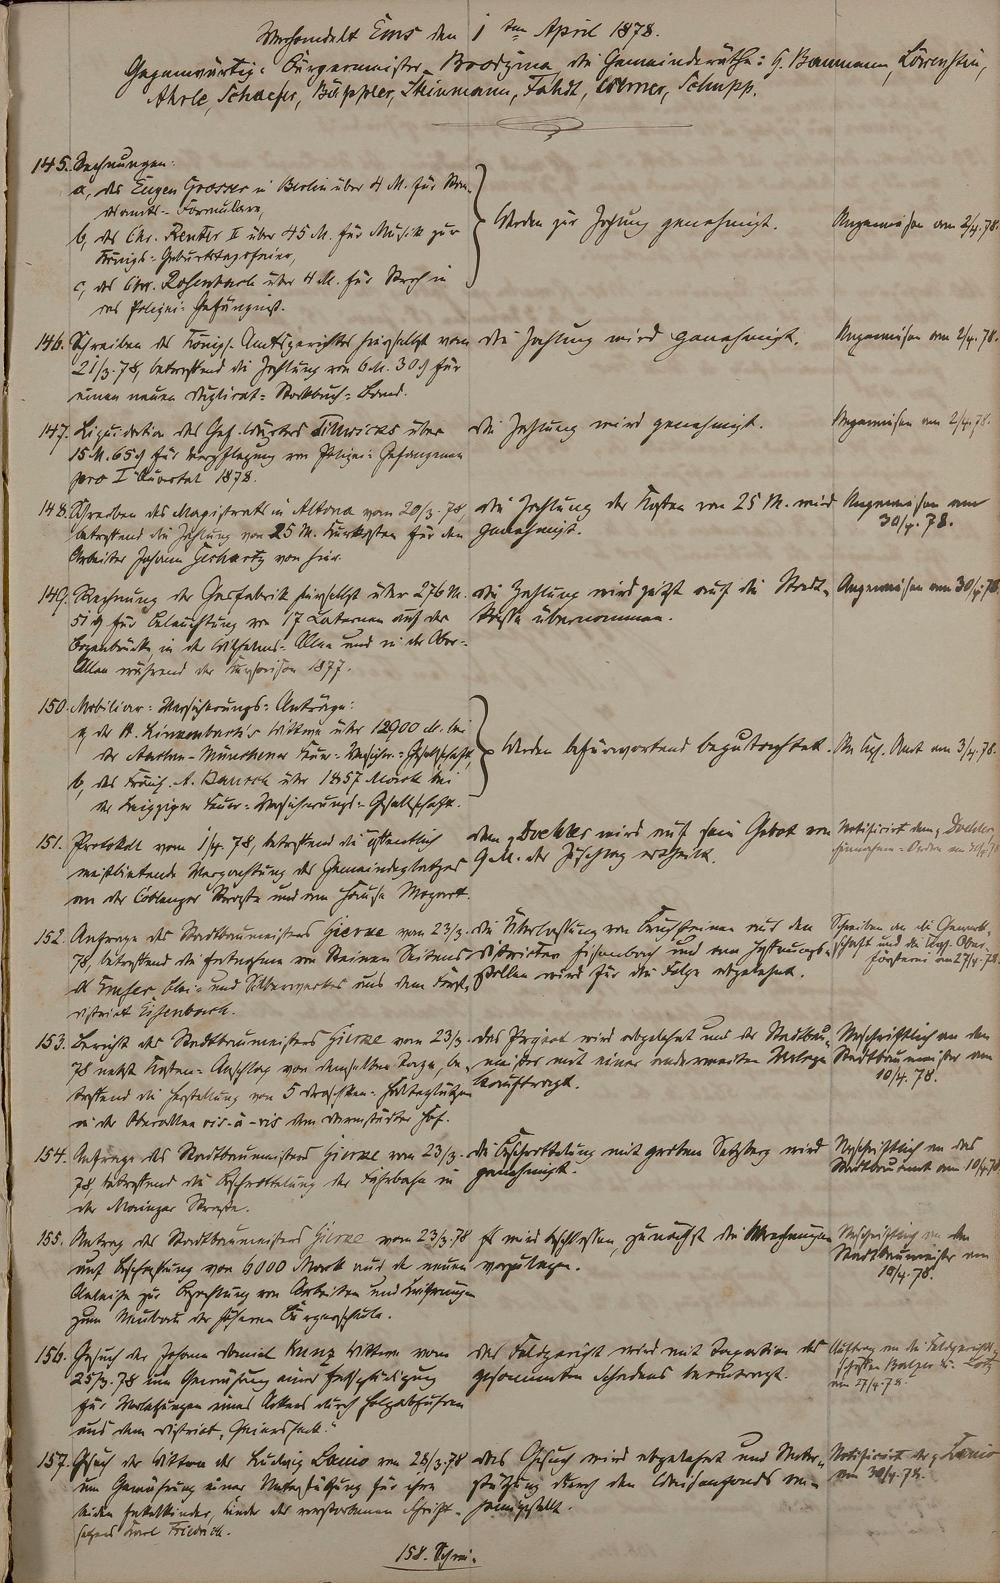 Verhandelt Ems den 1ten April 1878.
Gegenwärtig: Bürgermeister die Gemeinderäthe: G. Baumann, Löwenstein,
Ahrle, Schaefer, Bäppler, Steinmann, Fahdt, Schupp.
145. Rechnungen:
a, des Eugen Grosser in Berlin über 4 M. für Stan-
desamts-Formulare,
b, des Chr. Reuter II über 45 M. für Musik zur
Königs-Geburtstagsfeier,
c, des Chr. über 4 M. für Stroh in
das Polizei-Gefängniß.
Werden zur Zahlung genehmigt.
Angewiesen am 2/4.78.
146. Schreiben des Königl. Amtsgerichts hierselbst vom
21/3.78, betreffend die Zahlung von 6 M. 30 ₰ für
einen neuen Duplicat-Stockbuch-Band.
Die Zahlung wird genehmigt.
Angewiesen am 2/4.78.
147. Liquidation des Gef. Wärters über
15 M. 65 ₰ für Verpflegung von Polizei-Gefangenen
pro I Quartal 1878.
Die Zahlung wird genehmigt.
Angewiesen am 2/4.78.
148. Schreiben des Magistrats in Altona vom 20/3.78,
betreffend die Zahlung von 25 M. Kurkosten für den
Arbeiter Johann Gerhartz von hier.
Die Zahlung der Kosten von 25 M. wird
genehmigt.
Angewiesen am
30/4.78.
149. Rechnung der Gasfabrik hierselbst über 276 M.
51 ₰ für Beleuchtung von 17 Laternen auf der
Bogenbrücke, in der Wilhelms-Allee und in der Ober-
Allee während der 1877.
Die Zahlung wird jetzt auf die Stadt-
kasse übernommen.
Angewiesen am 30/4.78.
150. Mobiliar-Versicherungs-Anträge:
a, der H. Linkenbach's Wittwe über 12900 M. bei
der Aachen-Münchener Feuer-Versich.-Gesellschaft,
b, des Franz A. Bausch über 1857 Mark bei
der Leipziger Feuer-Versicherungs-Gesellschaft.
Werden befürwortend begutachtet.
An Kgl. Amt am 3/4.78.
151. Protokoll vom 1/4.78, betreffend die öffentlich
meistbietende Verpachtung des Gemeindeplatzes
an der Coblenzer Straße und dem Hause Mozart.
Dem wird auf sein Gebot von
M. der Zuschlag ertheilt.
Notificirt dem
152. Anfrage des Stadtbaumeisters Gierke vom 23/3.
78, betreffend die Entnahme von Steinen Seitens
d. Emser Blei- und Silberwerkes aus dem Forst-
district Eisenbach.
Die Überlassung von Bruchsteinen aus den
Districten Eisenbach und vom
Stollen wird für die Folge abgelehnt.
Schreiben an die Gewerk-
schaft und die Kgl. Ober-
försterei am 27/4.78.
153. Bericht des Stadtbaumeisters Gierke vom 23/3.
78 nebst Kosten-Anschlag von demselben Tage, be-
treffend die Herstellung von 5 Droschken-Halteplätzen
in der Oberallee vis-à-vis dem Darmstädter Hof.
Das Project wird abgelehnt und der Stadtbau-
meister mit einer anderweiten Vorlage
beauftragt.
Abschriftlich an den
Stadtbaumeister am
10/4.78.
154. Anfrage des Stadtbaumeisters Gierke vom 23/3.
78, betreffend die Beschotterung der Fahrbahn in
der Mainzer Straße.
Die Beschotterung mit grobem wird
genehmigt.
Abschriftlich an das
Stadtbauamt am 10/4.78.
155. Antrag des Stadtbaumeisters Gierke vom 23/3.78
auf Beschaffung von 6000 Mark aus der neuen
Anleihe zur Bezahlung von Arbeiten und Lieferungen
zum Neubau der höheren Bürgerschule.
Es wird beschlossen, zunächst die Abrechnungen
vorzulegen.
Abschriftlich an den
Stadtbaumeister am
10/4.78.
156. Gesuch der Johann Daniel Kunz Wittwe vom
25/3.78 um Gewährung einer Entschädigung
für Verletzungen eines Ackers durch Holzabfuhren
aus dem District
Das Feldgericht wird mit Taxation des
gesammten Schadens beauftragt.
Auftrag an die Feldgerichts-
schöffen Balzer u.
am 27/4.78.
157. Gesuch der Wittwe des Ludwig Lanio vom 28/3.78
um Gewährung einer Unterstützung für ihre
beiden Enkelkinder, Kinder des verstorbenen Schrift-
setzers Karl Friedrich.
Das Gesuch wird abgelehnt und Unter-
stützung durch den Waisenfonds an-
heimgestellt.
Notificirt der Lanio
am 30/4.78.
158. Schrei-